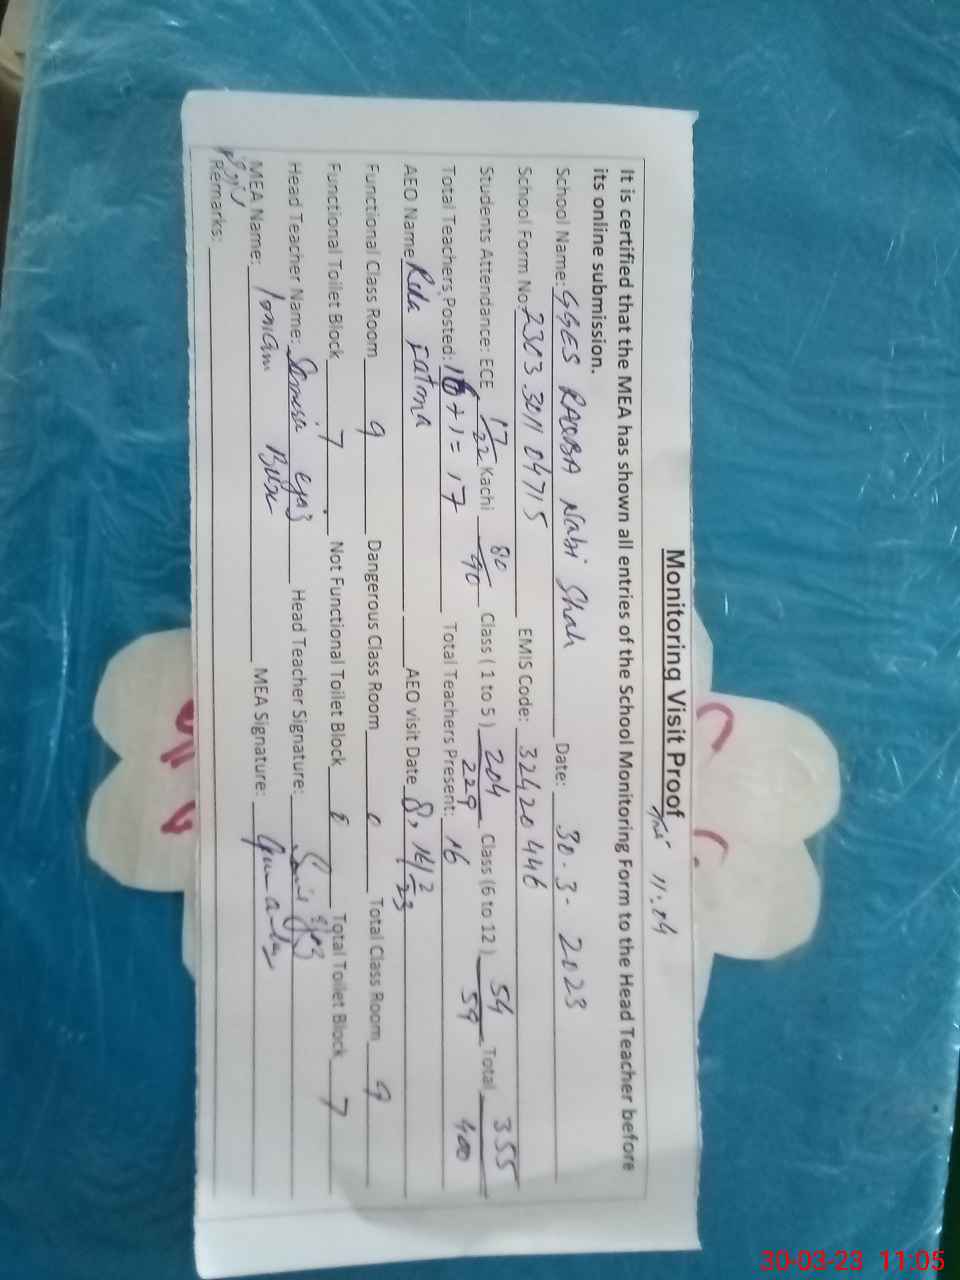 Monitoring Visit Proof
11:04
It is certified that the MEA has shown all entries of the School Monitoring Form to the Head Teacher before
its online submission.
School Name: GGES RAQBA Nabi Shah Date: 30.3-2023
School Form No: 2303 3011 04715 EMIS Code: 32420446
Students Attendance: ECE 17/22 Kachi 80/90 Class ( 1 to 5 ) 204/229 Class (6 to 12 ) 54/59 Total 355/400
Total Teachers Posted: 16+1=17 Total Teachers Present: 16
AEO Name Rida Fatma AEO visit Date 8, 16/2/23
Functional Class Room 9 Dangerous Class Room 0 Total Class Room 9
Functional Toilet Block 7 Not Functional Toilet Block 0 Total Toilet Block 7
Head Teacher Name: Head Teacher Signature:
MEA Name: MEA Signature:
Remarks:
30-03-23 11:05